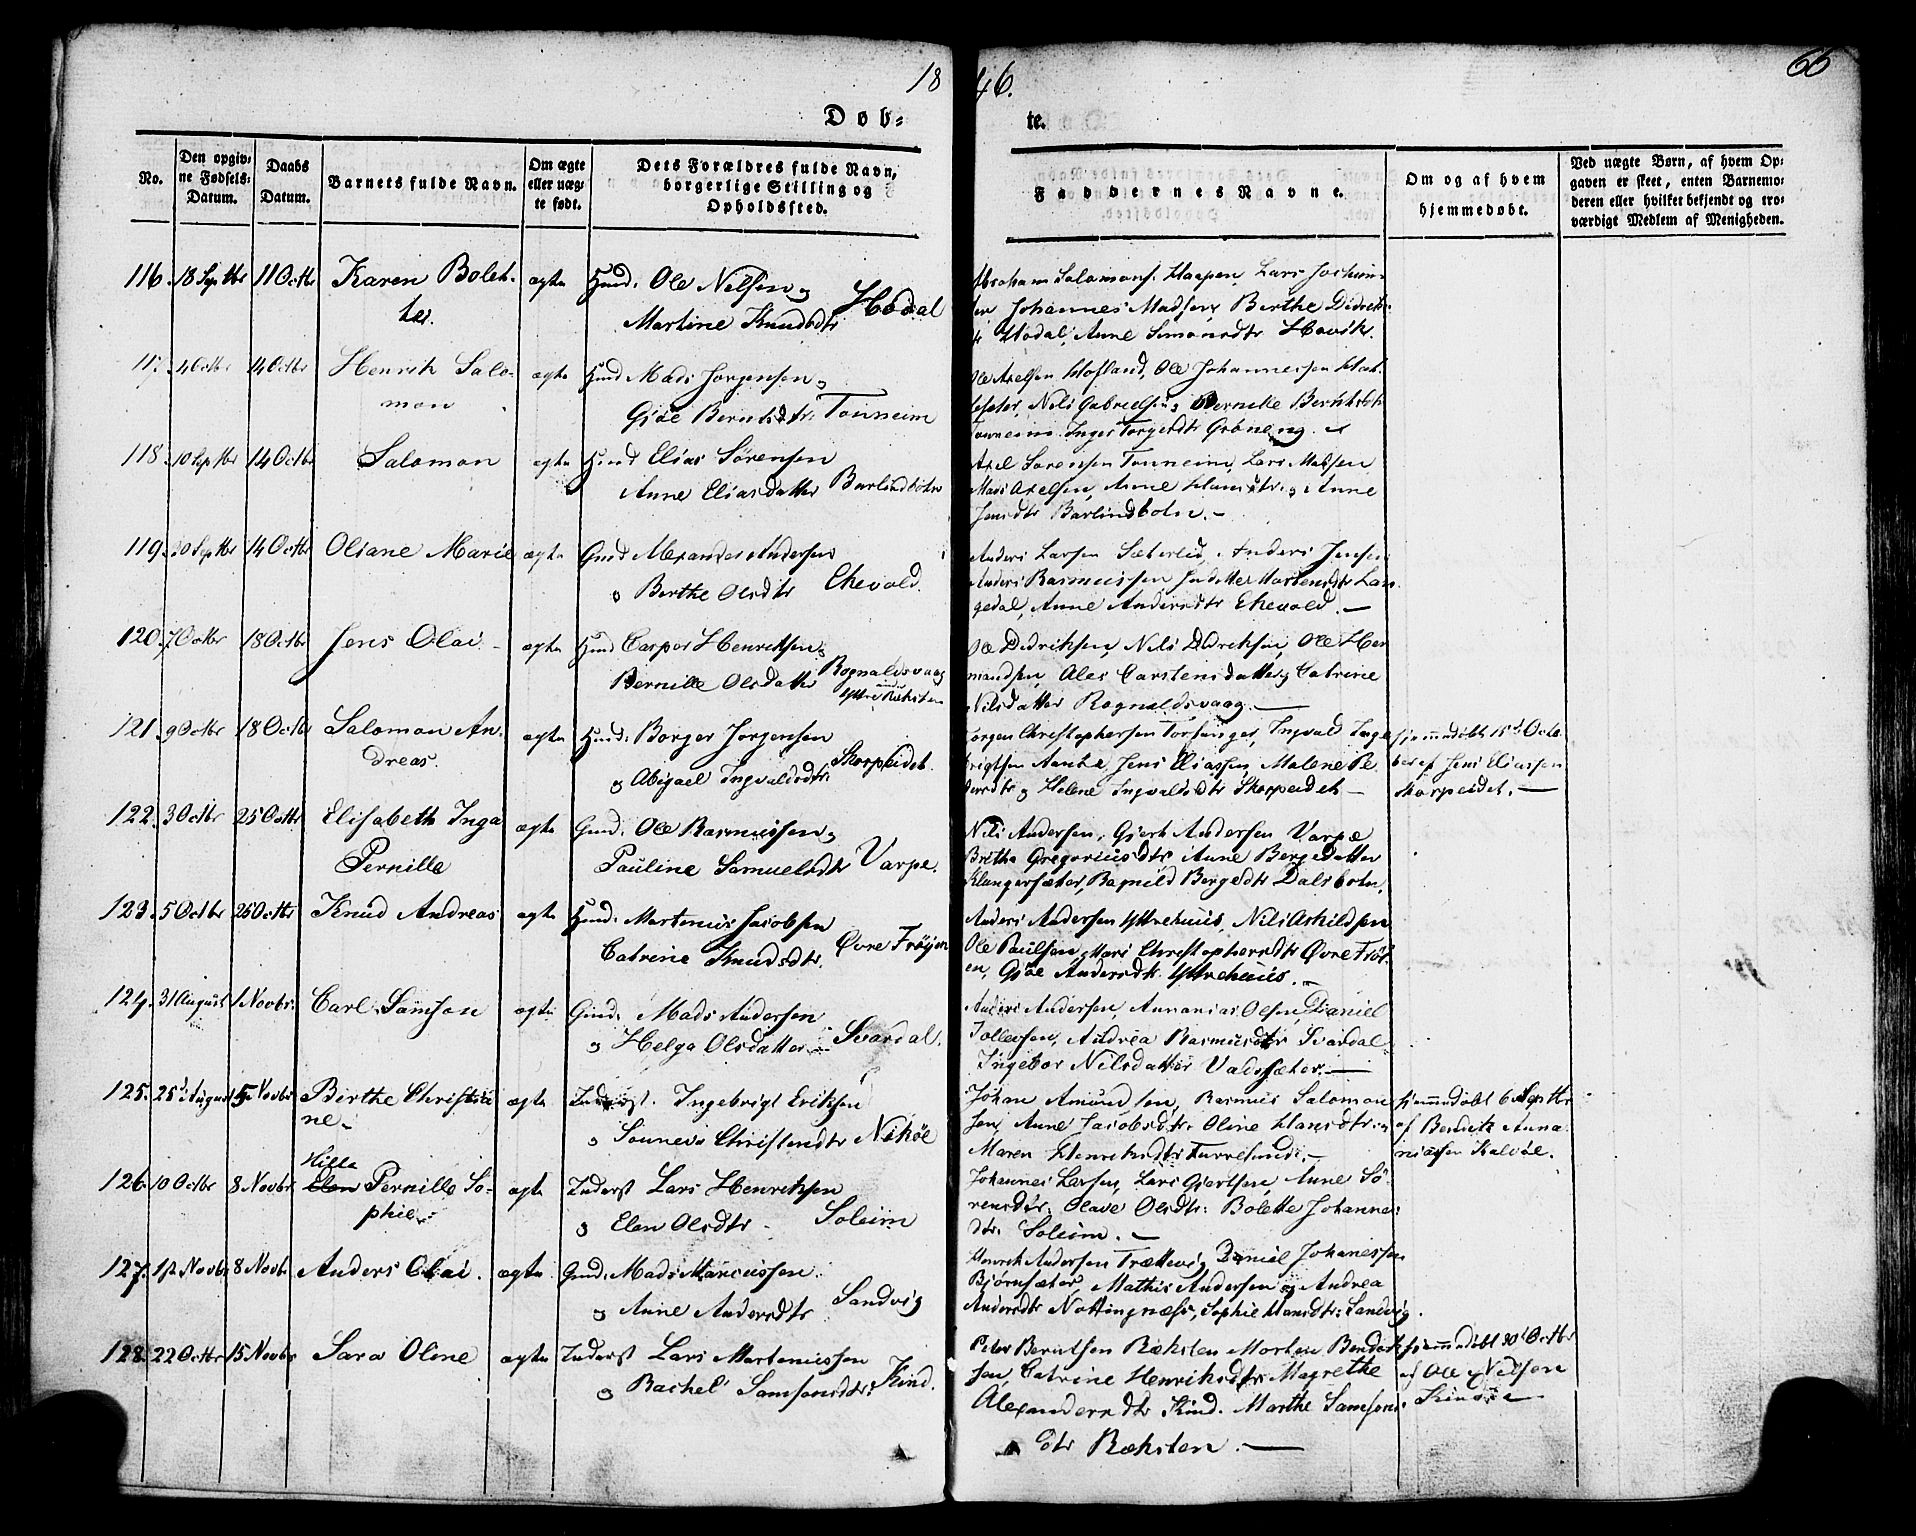 1846.
66
Døb-
te.
No.
Den opgiv-
ne Fødsels-
Datum.
Daabs
Datum.
Barnets fulde Navn.
Om ægte
eller uæg-
te født.
Dets Forældres fulde Navn,
borgerlige Stilling og
Opholdssted.
Faddernes Navne.
Om og af hvem
hjemmedøbt.
Ved uægte Børn, af hvem Op-
gaven er skeet, enten Barnemo-
deren eller hvilket bekjendt og tro-
værdigt Medlem af Menigheden.
116. 18 Septbr 11 Octbr Karen Bolet-
te. ægte Huusd: Ole Nilsen og
Martine Knudsdtr Hødal
Abraham Salamons.
Johannes Madsen, Berthe
Hødal, Anne Simonsdtr Hovik.
117. 4 Octbr 14 Octbr Henrik Salo-
mon ægte Mads Jørgensen og
Gjøe Berntsdtr: Tonneim
Ole Axelsen Hofland, Ole Johannessen
Nils Gabrielsen, Pernille
Tonneim. Inger Torgerdtr Grøneng.
118. 10 Septbr 14 Octbr Salomon ægte Elias Sørensen
Anne Eliasdatter Barlindbotn
Axel Sørensen Tonneim, Lars Madsen
Mads Axelsen, Anne Hansdtr og Anne
Jensdtr Barlindbotn.
119. 30 Septbr 14 Octbr Oliane Marie ægte Gmd Alexander Andersen
o Berthe Olsdtr Ehevold.
Anders Larsen Sæterlid, Anders Jensen
Anders Rasmussen Mortensdtr Lan-
gedal, Anne Andersdtr Ehevold.
120. 7 Octbr 18 Octbr Jens Olai ægte Casper Henriksen og
Pernille Olsdatter Rognaldsvaag
Ole Didriksen, Nils Didriksen, Ole Her
mandsen, Ales Carstensdatter og Catrine
Nilsdatter Rognaldsvaag.
121. 9 Octbr 18 Octbr Salomon An-
dreas. ægte Borger Jørgensen
o Abigael Ingvaldsdtr Skorpeidet
Jørgen Christophersen Torsanger, Ingvald Inge
brigtsen Jens Eliassen, Malene Pe-
dersdtr og Helene Ingvaldsdtr Skorpeidet
hjemmedøbt 15d Octo
ber af Jens Eliassen
Skorpeidet.
122. 3 Octbr 25 Octbr Elisabeth Inga
Pernille ægte Gmd: Ole Rasmussen og
Pauline Samuelsdtr Varpe.
Nils Andersen, Gjert Andersen Varpe
Brithe Gregoriusdtr, Anne Bergedatter
Klungersæter, Ragnild Bergedtr Dalsbotn.
123. 5 Octbr 25 Octbr Knud Andreas ægte Huusd: Martenius Jacobsen
Catrine Knudsdtr. Øvre Frøyen
Anders Andersen Yttrehuus, Nils Askildsen
Ole Paulsen, Mari Christophersdtr Øvre Frøi-
en, Gjøe Andersdtr. Yttrehuus.
124. 31 August 1 Novbr. Carl Samson ægte Gmd: Mads Andersen
o Helga Olsdatter Svardal.
Anders Andersen, Annanias Olsen, Daniel
Tollevsen, Andrea Rasmusdtr Svardal
Ingebor Nilsdatter Vadssæter.
125. 25d August 5 Novbr Birthe Christia
ne. ægte Inderst. Ingebrigt Eriksen
o Sonneva Christensdtr Nekøe
Johan Amundsen, Rasmus Salomon
sen, Anne Jacobsdtr. Oline Hansdtr:
Maren Henriksdtr Furresund.
hjemmedøbt 6 Septbr
af Bendik Anna
niassen Kalvøe.
126. 10 Octbr 8 Novbr Hilla
Elen Pernille So-
phie. ægte Inderst Lars Henriksen
o Elen Olsdtr Soleim
Johannes Larsen, Lars Gjertsen, Anne Sø-
rensdtr. Olave Olsdtr: Bolette Johanne-
dtr. Soleim.
127. 1st Novbr 8 Novbr Anders Olai. ægte Gmd: Mads Marcussen
o Anne Andersdtr Sandvig
Henrik Andersen Trættevig Daniel Johanessen
Bjørnsæter, Mathis Andersen og Andrea
Andersdtr Nøttingnæss, Sophie Hansdtr: Sandvig.
128. 22 Octbr 15 Novbr Sara Oline ægte Inderst Lars Martenussen
o Rachel Samsonsdtr: Kind.
Peter Berntsen Ræksten Morten Bendik
sen, Catrine Henriksdtr Magrethe
Alexandersdtr Kind. Marthe Samsons-
dtr Ræksten.
hjemmedøbt 30d Octbr
af Ole Nilsen